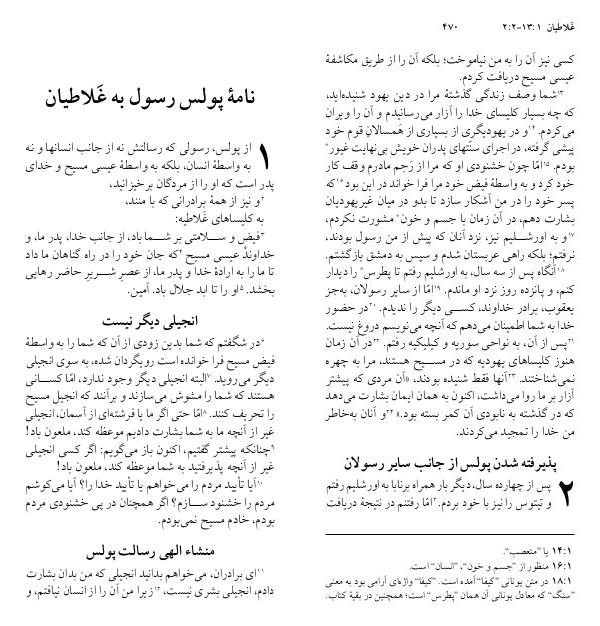 غَلاطیان ۱:‏۱۳–۲:‏۲
۴۷۰
نامهٔ پولس رسول به غَلاطیان
۱ از پولس، رسولی که رسالتش نه از جانب انسانها و نه
به واسطهٔ انسان، بلکه به واسطهٔ عیسی مسیح و خدای
پدر است که او را از مردگان برخیزانید،
۲و نیز از همهٔ برادرانی که با منند،
به کلیساهای غَلاطیه:
۳فیض و سلامتی بر شما باد، از جانب خدا، پدر ما، و
خداوندْ عیسی مسیح ۴که جان خود را در راه گناهان ما داد
تا ما را به ارادهٔ خدا و پدر ما، از عصرِ شریرِ حاضر رهایی
بخشد. ۵او را تا ابد جلال باد. آمین.
انجیلی دیگر نیست
۶در شگفتم که شما بدین زودی از آن که شما را به واسطهٔ
فیض مسیح فرا خوانده است رویگردان شده، به سوی انجیلی
دیگر می‌روید. ۷البته انجیلی دیگر وجود ندارد، امّا کسانی
هستند که شما را مشوش می‌سازند و برآنند که انجیل مسیح
را تحریف کنند. ۸امّا حتی اگر ما یا فرشته‌ای از آسمان، انجیلی
غیر از آنچه ما به شما بشارت دادیم موعظه کند، ملعون باد!
۹چنانکه پیشتر گفتیم، اکنون باز می‌گویم: اگر کسی انجیلی
غیر از آنچه پذیرفتید به شما موعظه کند، ملعون باد!
۱۰آیا تأیید مردم را می‌خواهم یا تأیید خدا را؟ آیا می‌کوشم
مردم را خشنود سازم؟ اگر همچنان در پی خشنودی مردم
بودم، خادم مسیح نمی‌بودم.
منشاء الهی رسالت پولس
۱۱ای برادران، می‌خواهم بدانید انجیلی که من بدان بشارت
دادم، انجیلی بشری نیست، ۱۲زیرا من آن را از انسان نیافتم، و
کسی نیز آن را به من نیاموخت؛ بلکه آن را از طریق مکاشفهٔ
عیسی مسیح دریافت کردم.
۱۳شما وصف زندگی گذشتهٔ مرا در دین یهود شنیده‌اید،
که چه بسیار کلیسای خدا را آزار می‌رسانیدم و آن را ویران
می‌کردم. ۱۴و در یهودیگری از بسیاری از همسالانِ قوم خود
پیشی گرفته، در اجرای سنّتهای پدران خویش بی‌نهایت غیور*
بودم. ۱۵امّا چون خشنودی او که مرا از رَحِم مادرم وقف کار
خود کرد و به واسطهٔ فیض خود مرا فرا خواند در این بود ۱۶که
پسر خود را در من آشکار سازد تا بدو در میان غیریهودیان
بشارت دهم، در آن زمان با جسم و خون* مشورت نکردم،
۱۷و به اورشلیم نیز، نزد آنان که پیش از من رسول بودند،
نرفتم؛ بلکه راهی عربستان شدم و سپس به دمشق بازگشتم.
۱۸آنگاه پس از سه سال، به اورشلیم رفتم تا پطرس* را دیدار
کنم، و پانزده روز نزد او ماندم. ۱۹امّا از سایر رسولان، به‌جز
یعقوب، برادر خداوند، کسی دیگر را ندیدم. ۲۰در حضور
خدا به شما اطمینان می‌دهم که آنچه می‌نویسم دروغ نیست.
۲۱پس از آن، به نواحی سوریه و کیلیکیه رفتم. ۲۲در آن زمان
هنوز کلیساهای یهودیه که در مسیح هستند، مرا به چهره
نمی‌شناختند. ۲۳آنها فقط شنیده بودند، «آن مردی که پیشتر
آزار بر ما روا می‌داشت، اکنون به همان ایمان بشارت می‌دهد
که در گذشته به نابودی آن کمر بسته بود.» ۲۴و آنان به‌خاطر
من خدا را تمجید می‌کردند.
پذیرفته شدن پولس از جانب سایر رسولان
۲ پس از چهارده سال، دیگر بار همراه برنابا به اورشلیم رفتم
و تیتوس را نیز با خود بردم. ۲امّا رفتنم در نتیجهٔ دریافت
۱:‏۱۴ یا ”متعصب“.
۱:‏۱۶ منظور از ”جسم و خون“، ”انسان“ است.
۱:‏۱۸ در متن یونانی ”کیفا“ آمده است. ”کیفا“ واژه‌ای آرامی بود به معنی
”سنگ“ که معادل یونانی آن همان ”پطرس“ است؛ همچنین در بقیهٔ کتاب.